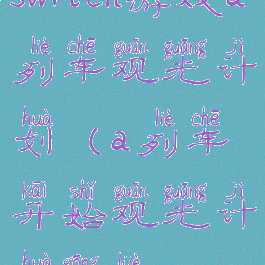 switch游戏a
liè chē guān guāng jì
列车观光计
huà liè chē
划（a列车
kāi shǐ guān guāng jì
开始观光计
huà gōng lüè